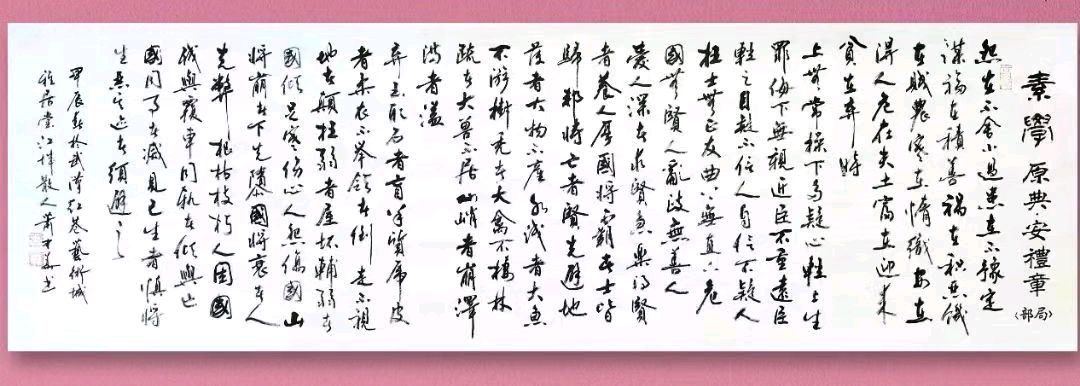 素學 原典·安禮章
〈部局〉
怨在不舍小過患在不豫定
謀福在積善禍在積惡饑
在賤農寒在惰織安在
得人危在失士富在迎來
貧在棄時
上無常操下多疑心輕上生
罪侮下無親近臣不重遠臣
輕之自疑不信人自信不疑人
枉士無正友曲上無直下危
國無賢人亂政無善人
愛人深者求賢急樂得賢
者養人厚國將霸者士皆
歸邦將亡者賢先避地
薄者大物不產水淺者大魚
不游樹禿者大禽不棲林
疏者大獸不居山峭者崩澤
滿者溢
棄玉取石者盲羊質虎皮
者柔衣不舉領者倒走不視
地者顛柱弱者屋壞輔弱者
國傾足寒傷心人怨傷國山
將崩者下先隳國將衰者人
先弊根枯枝朽人困國
殘與覆車同軌者傾與亡
國同事者滅見已生者慎將
生惡其跡者須避之
甲辰春於武漢紅巷藝術城
雅居堂江津散人